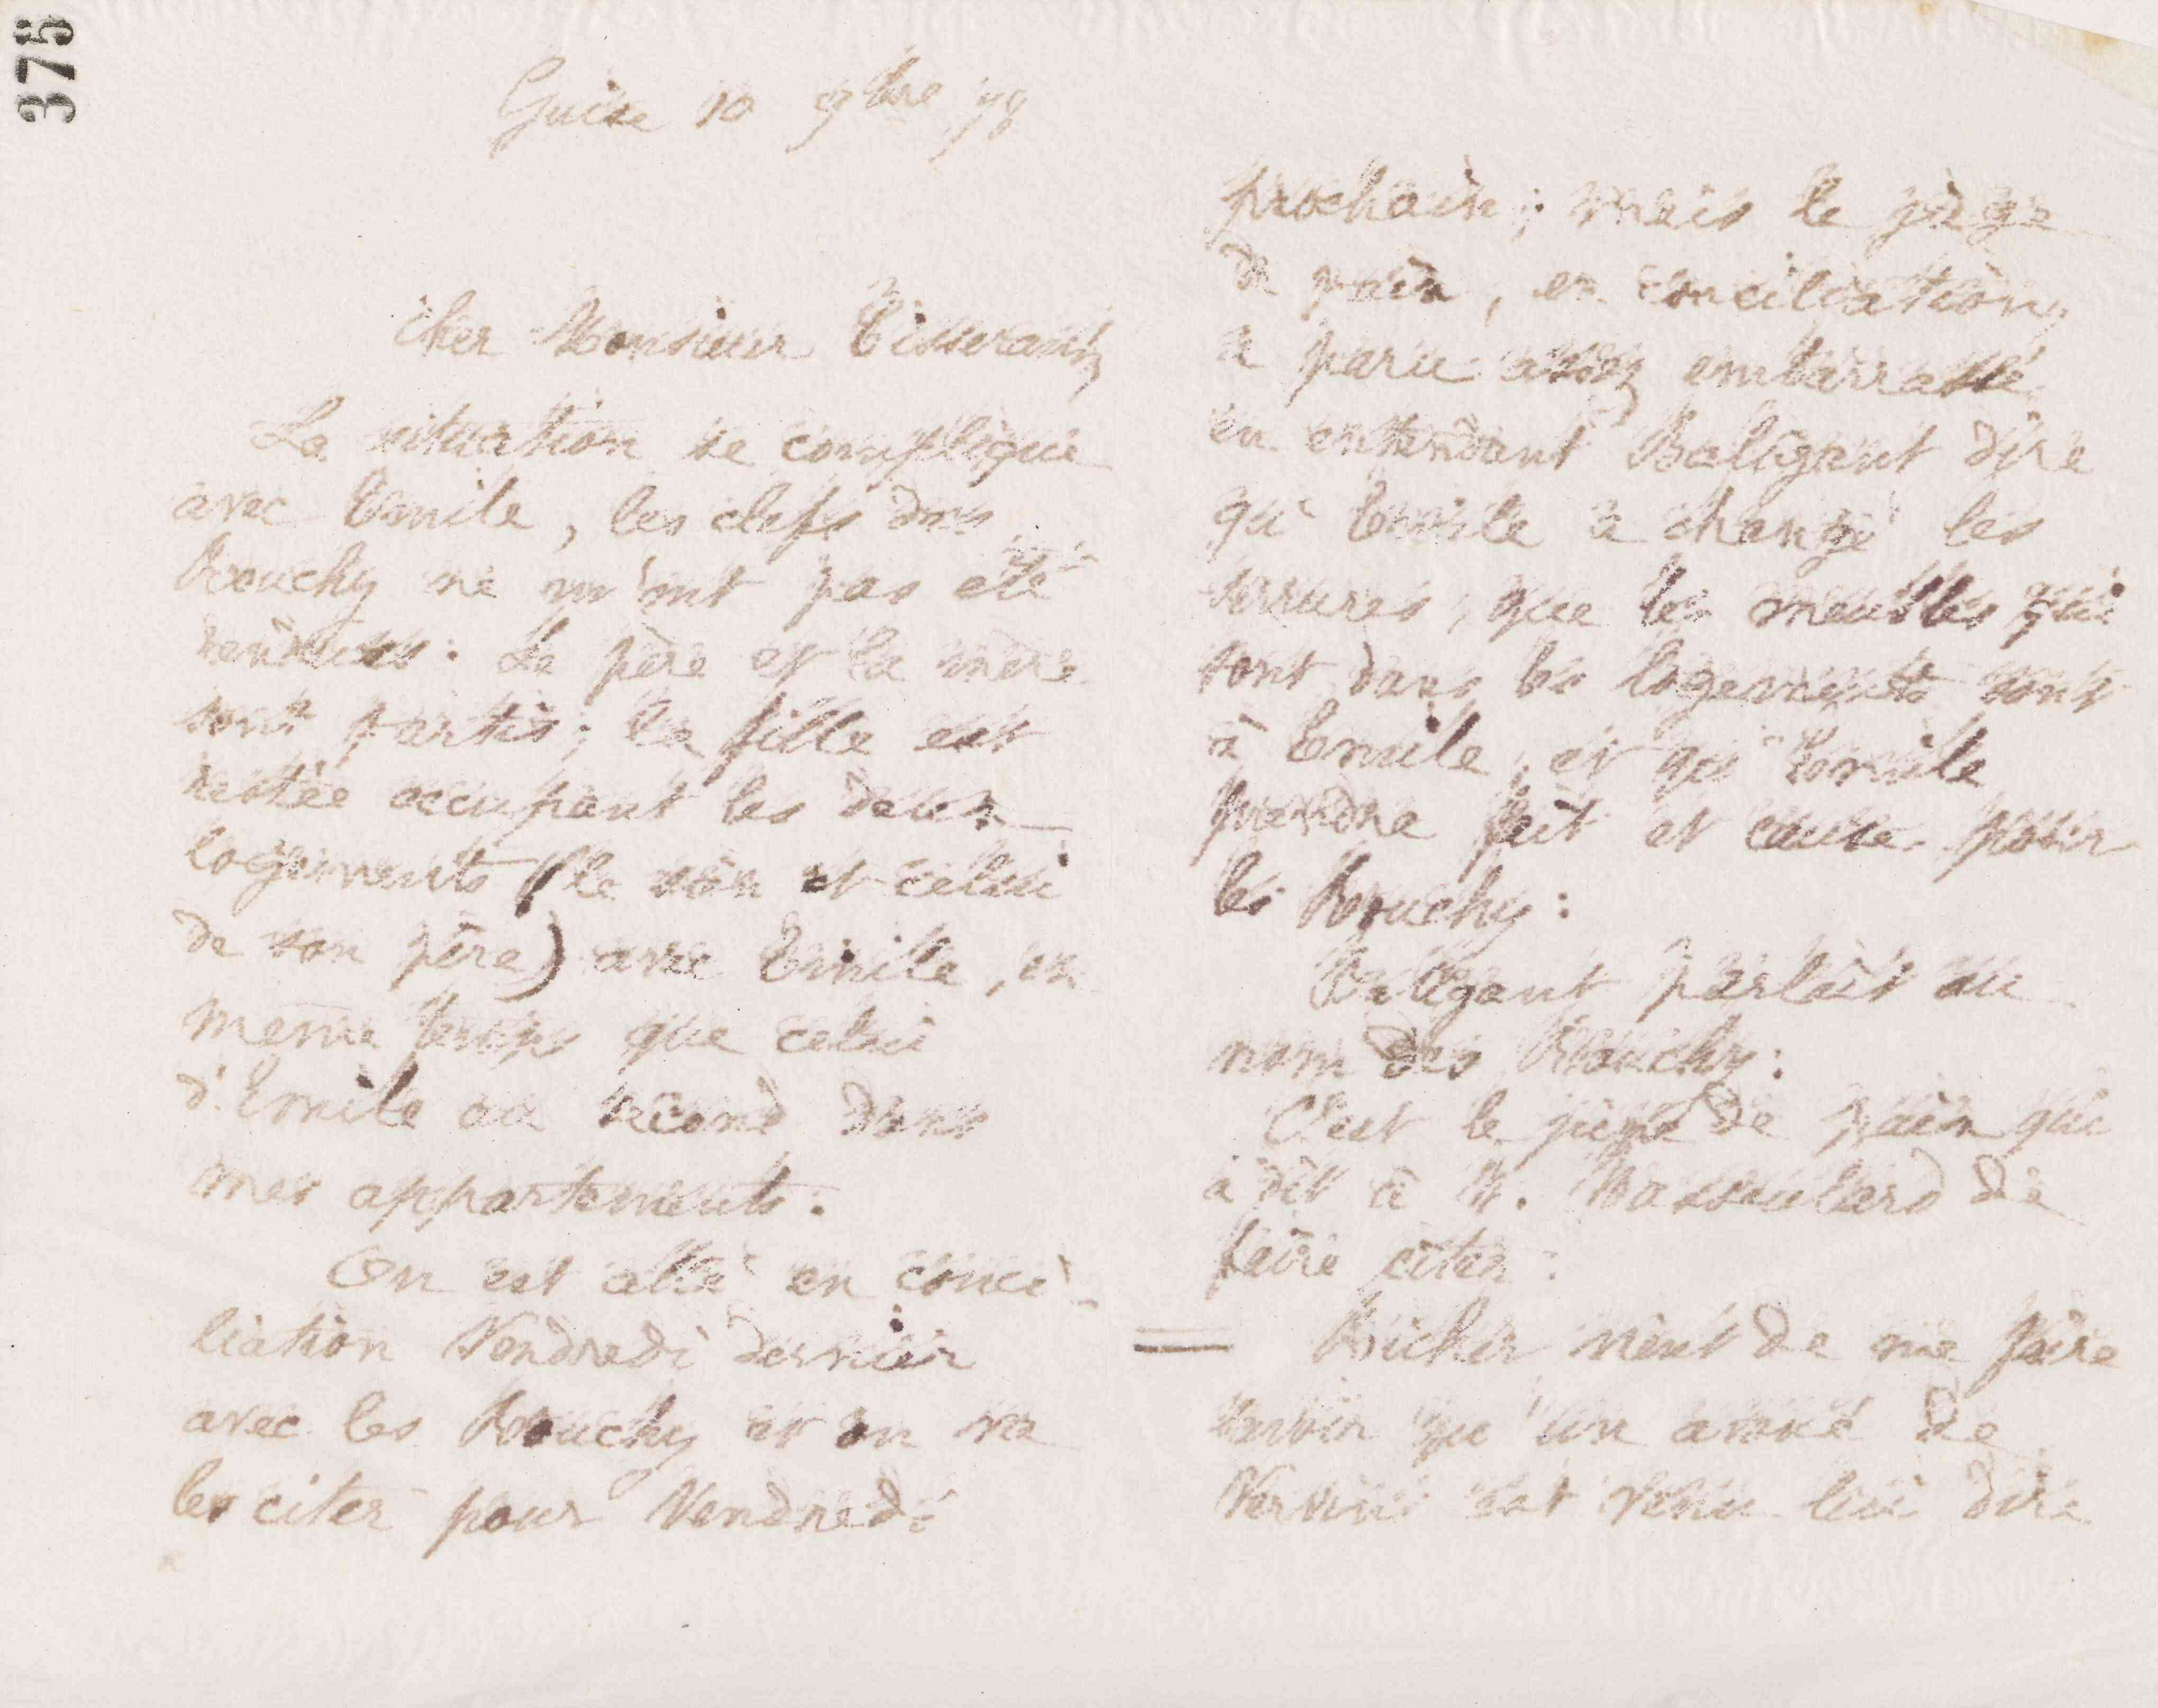 375
Guise 10 9bre 78
Cher Monsieur Tisserant,
La situation se complique
avec Emile, les clefs des
Rouchy ne m'ont pas été
rendues. Le père et la mère
sont partis; la fille est
restée occupant les deux
logements (le sien et celui
de son père) avec Emile, en
même temps que celui
d'Emile au second dans
mes appartements.
On est allé en conci-
liation Vendredi dernier
avec les Rouchy et on va
les citer pour Vendredi
prochain; mais le juge
de paix, en conciliation,
a paru assez embarrassé
en entendant Baligant dire
qu'Emile a changé les
serrures, que les meubles qui
sont dans les logements sont
à Emile, et qu'Emile
prendra fait et cause pour
les Rouchy:
Baligant parlait au
nom des Rouchy:
C'est le juge de paix qui
a dit à M. Massoulard de
faire citer:
= vient de me faire
savoir qu'un avoué de
Vervins est venu lui dire